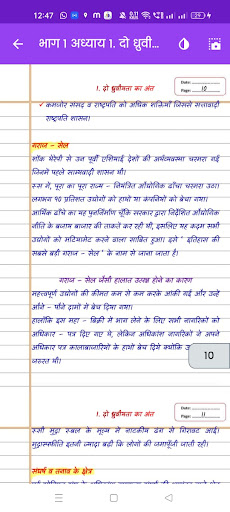 12:47
29
भाग 1 अध्याय 1. दो ध्रुवी...
1. दो ध्रुवीयता का अंत
Date:
Page: 10
✓ कमजोर संसद व राष्ट्रपति को अधिक शक्तियाँ जिससे सत्तावादी
राष्ट्रपति शासन।
गराज - सेल
शॉक थेरेपी से उन पूर्वी एशियाई देशों की अर्थव्यवस्था चरमरा गई
जिनमे पहले साम्यवादी शासन थी।
रूस में, पूरा का पूरा राज्य - नियंत्रित औद्योगिक ढाँचा चरमरा उठा।
लगभग 90 प्रतिशत उद्योगों को हाथों या कंपनियों को बेचा गया।
आर्थिक ढाँचे का यह पुनर्निर्माण चूँकि सरकार द्वारा निर्देशित औद्योगिक
नीति के बजाय बाजार की ताकतें कर रही थी, इसलिए यह कदम सभी
उद्योगों को मटियामेट करने वाला साबित हुआ। इसे " इतिहास की
सबसे बड़ी गराज - सेल " के नाम से जाना जाता है।
गराज - सेल जैसी हालात उत्पन्न होने का कारण
महत्वपूर्ण उद्योगों की कीमत कम से कम करके आंकी गई और उन्हें
औने - पौने दामों में बेच दिया गया।
हालाँकि इस महा - बिक्री में भाग लेने के लिए सभी नागरिकों को
अधिकार - पत्र दिए गए थे, लेकिन अधिकांश नागरिकों ने अपने
अधिकार पत्र कालाबाजारियों के हाथों बेच दिये क्योंकि
जरुरत थी।
10
1. दो ध्रुवीयता का अंत
Date:
Page: 11
रूसी मुद्रा रूबल के मूल्य में नाटकीय ढंग से गिरावट आई।
मुद्रास्फीति इतनी ज्यादा बढ़ी कि लोगों की जमापूँजी जाती रही।
संघर्ष व तनाव के क्षेत्र